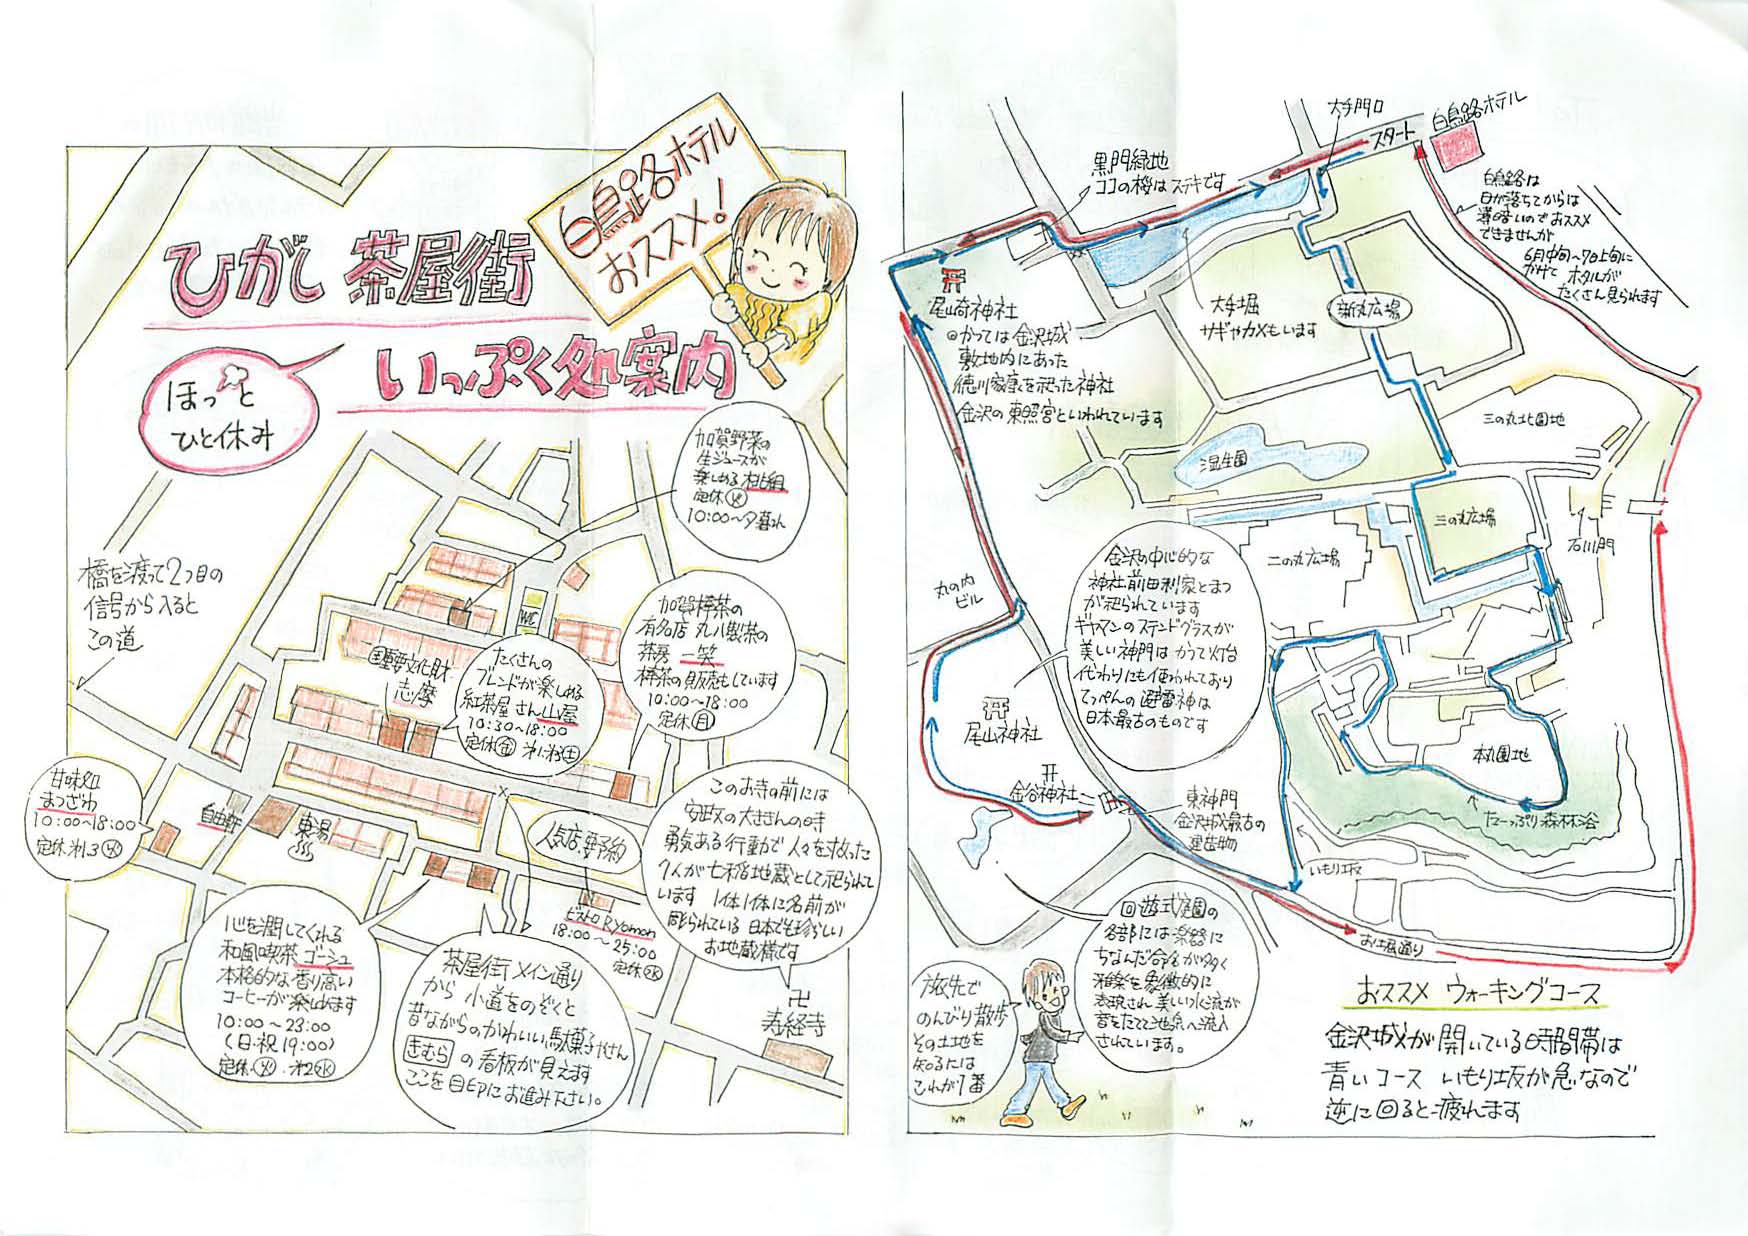 白鳥路ホテル
おススメ!
ひがし 茶屋街
いっぷく処案内
ほっと
ひと休み
加賀野菜の
生ジュースが
楽しめる
定休㊋
10:00〜夕暮れ
橋を渡って2つ目の
信号から入ると
この道
WC
加賀棒茶の
有名店 丸八製茶の
茶房 一笑
棒茶の販売もしています
10:00〜18:00
定休㊊
国重要文化財
志摩
たくさんの
ブレンドが楽しめる
紅茶屋さん山屋
10:30〜18:00
定休㊎
甘味処
まつざわ
10:00〜18:00
定休 第3㊌
自由軒
東湯
人気店 要予約
ビストロ Ryomon
18:00〜25:00
定休㊌
このお寺の前には
安政の大ききんの時
勇気ある行動で人々を救った
7人が七稲地蔵として祀られて
います 1体1体に名前が
彫られている 日本でも珍らしい
お地蔵様です
卍
寿経寺
心を潤してくれる
和風喫茶 ゴーシュ
本格的な香り高い
コーヒーが楽しめます
10:00〜23:00
(日・祝 19:00)
定休 ㊋ 第2㊌
茶屋街メイン通り
から 小道をのぞくと
昔ながらのかわいい駄菓子やさん
きむら の看板が見えます
ここを目印にお進み下さい。
大手門口
スタート
白鳥路ホテル
黒門緑地
ココの桜はステキです
白鳥路は
日が落ちてからは
薄暗いのでおススメ
できませんが
6月中旬〜7月上旬に
かけて ホタルが
たくさん見られます
尾崎神社
◎かつては金沢城
敷地内にあった
徳川家康を祀った神社
金沢の東照宮といわれています
大手堀
サギやカメもいます
新丸広場
三の丸北園地
湿生園
三の丸広場
石川門
二の丸広場
丸の内
ビル
金沢の中心的な
神社 前田利家とまつ
が祀られています
ギヤマンのステンドグラスが
美しい神門は かつて灯台
代わりにも使われており
てっぺんの避雷針は
日本最古のものです
尾山神社
金谷神社
本丸園地
たーっぷり森林浴
東神門
金沢城最古の
建造物
いもり坂
お堀通り
回遊式庭園の
各部には楽器に
ちなんだ名が多く
雅楽を象徴的に
表現され 美しい水流が
音をたてて池泉へ流入
されています。
旅先で
のんびり散歩
その土地を
知るには
これが1番
おススメ ウォーキングコース
金沢城が開いている時間帯は
青いコース いもり坂が急なので
逆に回ると疲れます